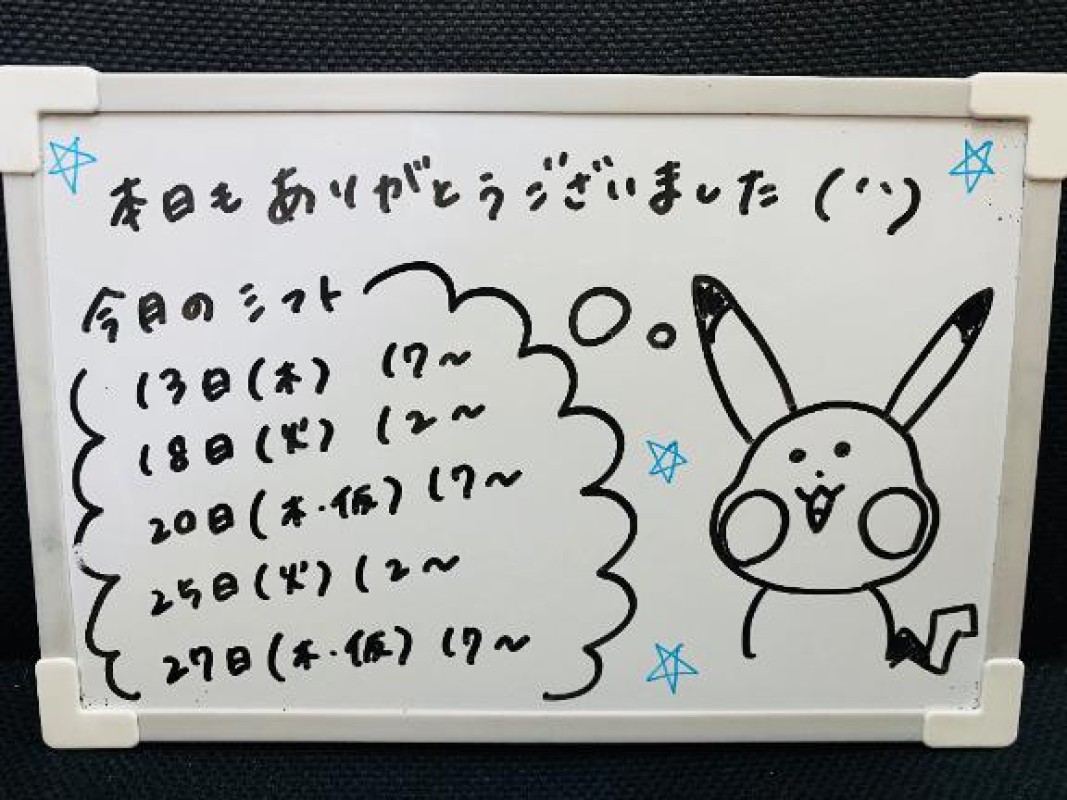 本日もありがとうございました(¨)
今月のシフト
13日(木) 17〜
18日(火) 12〜
20日(木・仮) 17〜
25日(火) 12〜
27日(木・仮) 17〜